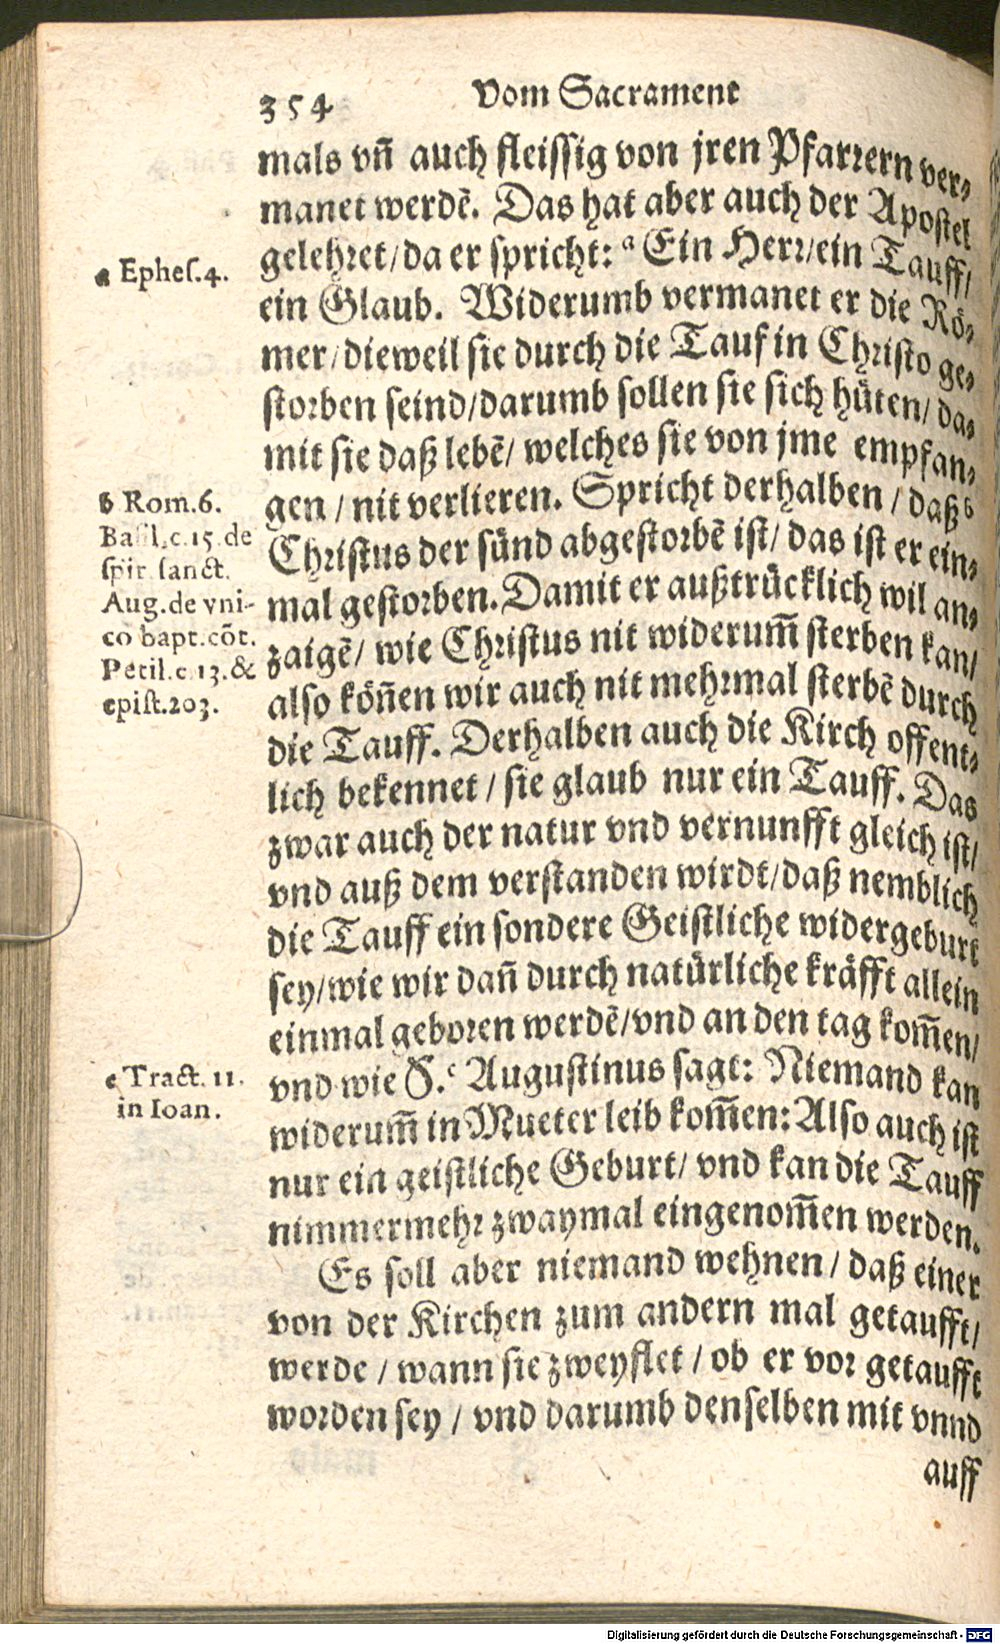 354
Vom Sacrament
mals vn̄ auch fleissig von jren Pfarrern ver⸗
manet werdē. Das hat aber auch der Apostel
gelehret/da er spricht: a Ein Herr/ein Tauff/
a Ephes.4.
ein Glaub. Widerumb vermanet er die Rö⸗
mer/dieweil sie durch die Tauf in Christo ge⸗
storben seind/darumb sollen sie sich hüten/ da⸗
mit sie daß lebē/ welches sie von jme empfan⸗
gen / nit verlieren. Spricht derhalben / daß b
b Rom.6.
Basil.c.15.de
spir.sanct.
Aug.de vni-
co bapt.cōt.
Petil.c.13.&
epist.203.
Christus der sünd abgestorbē ist/ das ist er ein⸗
mal gestorben. Damit er außtrücklich wil an⸗
zaigē/ wie Christus nit widerum̄ sterben kan/
also kön̄en wir auch nit mehrmal sterbē durch
die Tauff. Derhalben auch die Kirch offent⸗
lich bekennet / sie glaub nur ein Tauff. Das
zwar auch der natur vnd vernunfft gleich ist/
vnd auß dem verstanden wirdt/daß nemblich
die Tauff ein sondere Geistliche widergeburt
sey/wie wir dan̄ durch natürliche kräfft allein
einmal geboren werdē/vnd an den tag kom̄en/
vnd wie S. c Augustinus sagt: Niemand kan
c Tract. 11.
in Ioan.
widerum̄ in Mueter leib kom̄en: Also auch ist
nur ein geistliche Geburt/ vnd kan die Tauff
nimmermehr zwaymal eingenom̄en werden.
Es soll aber niemand wehnen / daß einer
von der Kirchen zum andern mal getaufft/
werde / wann sie zweyflet / ob er vor getaufft
worden sey / vnd darumb denselben mit vnnd
auff
Digitalisierung gefördert durch die Deutsche Forschungsgemeinschaft - DFG